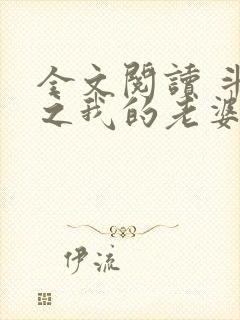 全文閱讀 斗
之我的老婆
伊流